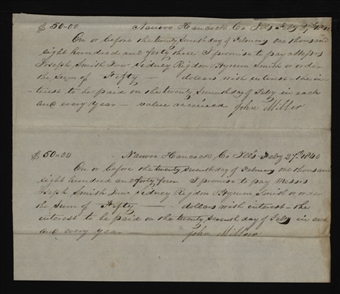 $50-00 Nauvoo Hancock Co Ills Feby 27th 1840
On or before the twenty seventh day of February one thousand
eight hundred and forty three I promise to pay Messrs
Joseph Smith Junr Sidney Rigdon Hyrum Smith or order
the sum of Fifty — dollars with interest the in-
terest to be paid on the twenty seventh day of Feby in each
and every year — value received John Wilber
$50-00 Nauvoo Hancock Co Ills Feby 27th 1840
On or before the twenty seventh day of February one thousand
eight hundred and forty four I promise to pay Messrs
Joseph Smith Junr Sidney Rigdon Hyrum Smith or order
the sum of Fifty — dollars with interest — the
interest to be paid on the twenty seventh day of Feby in each
and every year — John Wilber